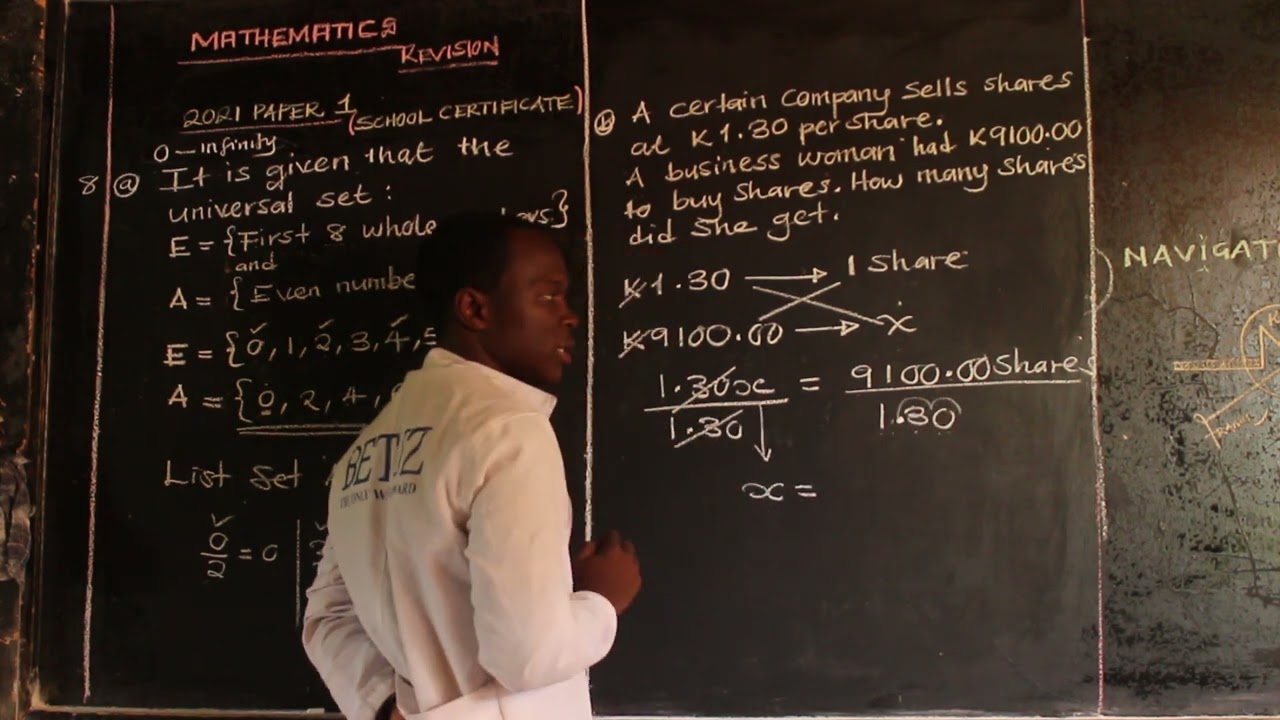 MATHEMATICS
REVISION
2021 PAPER 1 (SCHOOL CERTIFICATE)
0 – infinity
8 (a) It is given that the
universal set :
E = {First 8 whole
and
A = { Even numbe
E = {0, 1, 2, 3, 4, 5
A = {0, 2, 4,
List Set
0/2 = 0
(b) A certain Company sells shares
at K1.30 per share.
A business woman had K9100.00
to buy shares. How many shares
did she get.
K1.30 → 1 Share
K9100.00 → x
1.30x = 9100.00 Shares
1.30 1.30
x =
NAVIGAT
BETZ